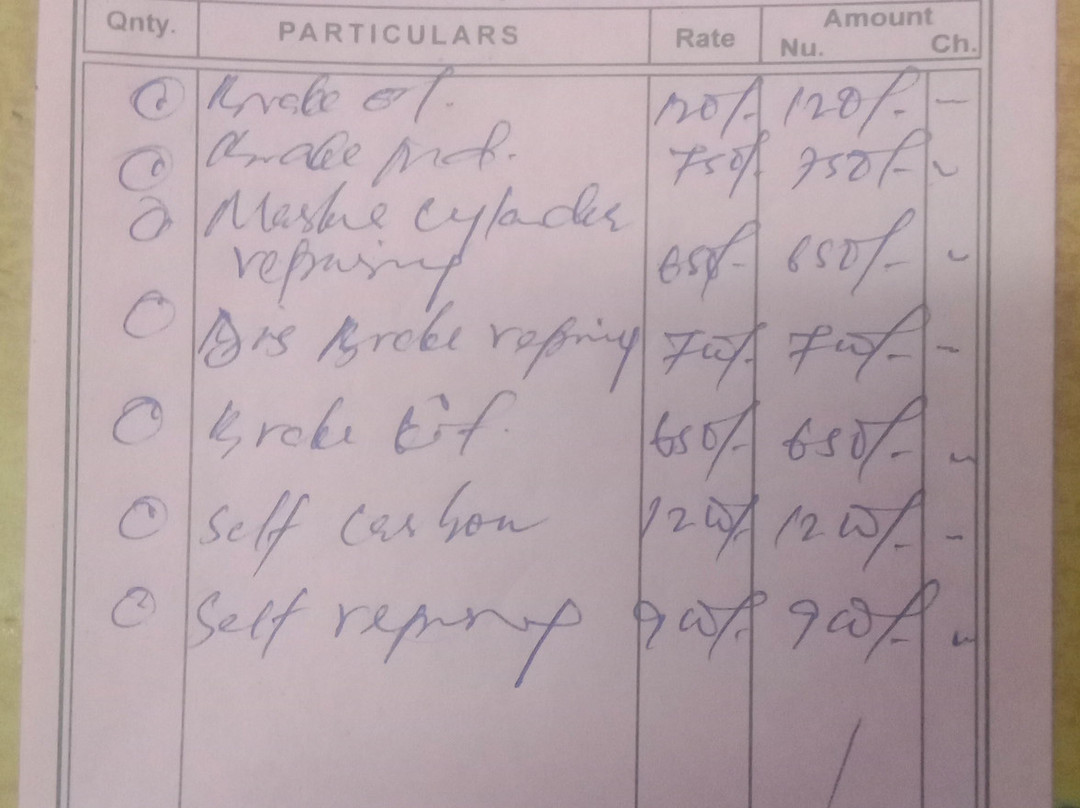 Qnty. PARTICULARS Rate Amount
Nu. Ch.
① Brake oil. 120/- 120/- -
① Brake pad. 750/- 750/- -
① Mastue cylander
repairing 650/- 650/- -
① Dis Brake repring 700/- 700/- -
① Brake kit. 650/- 650/- -
① Self carbon 1200/- 1200/- -
① Self repring 900/- 900/- -